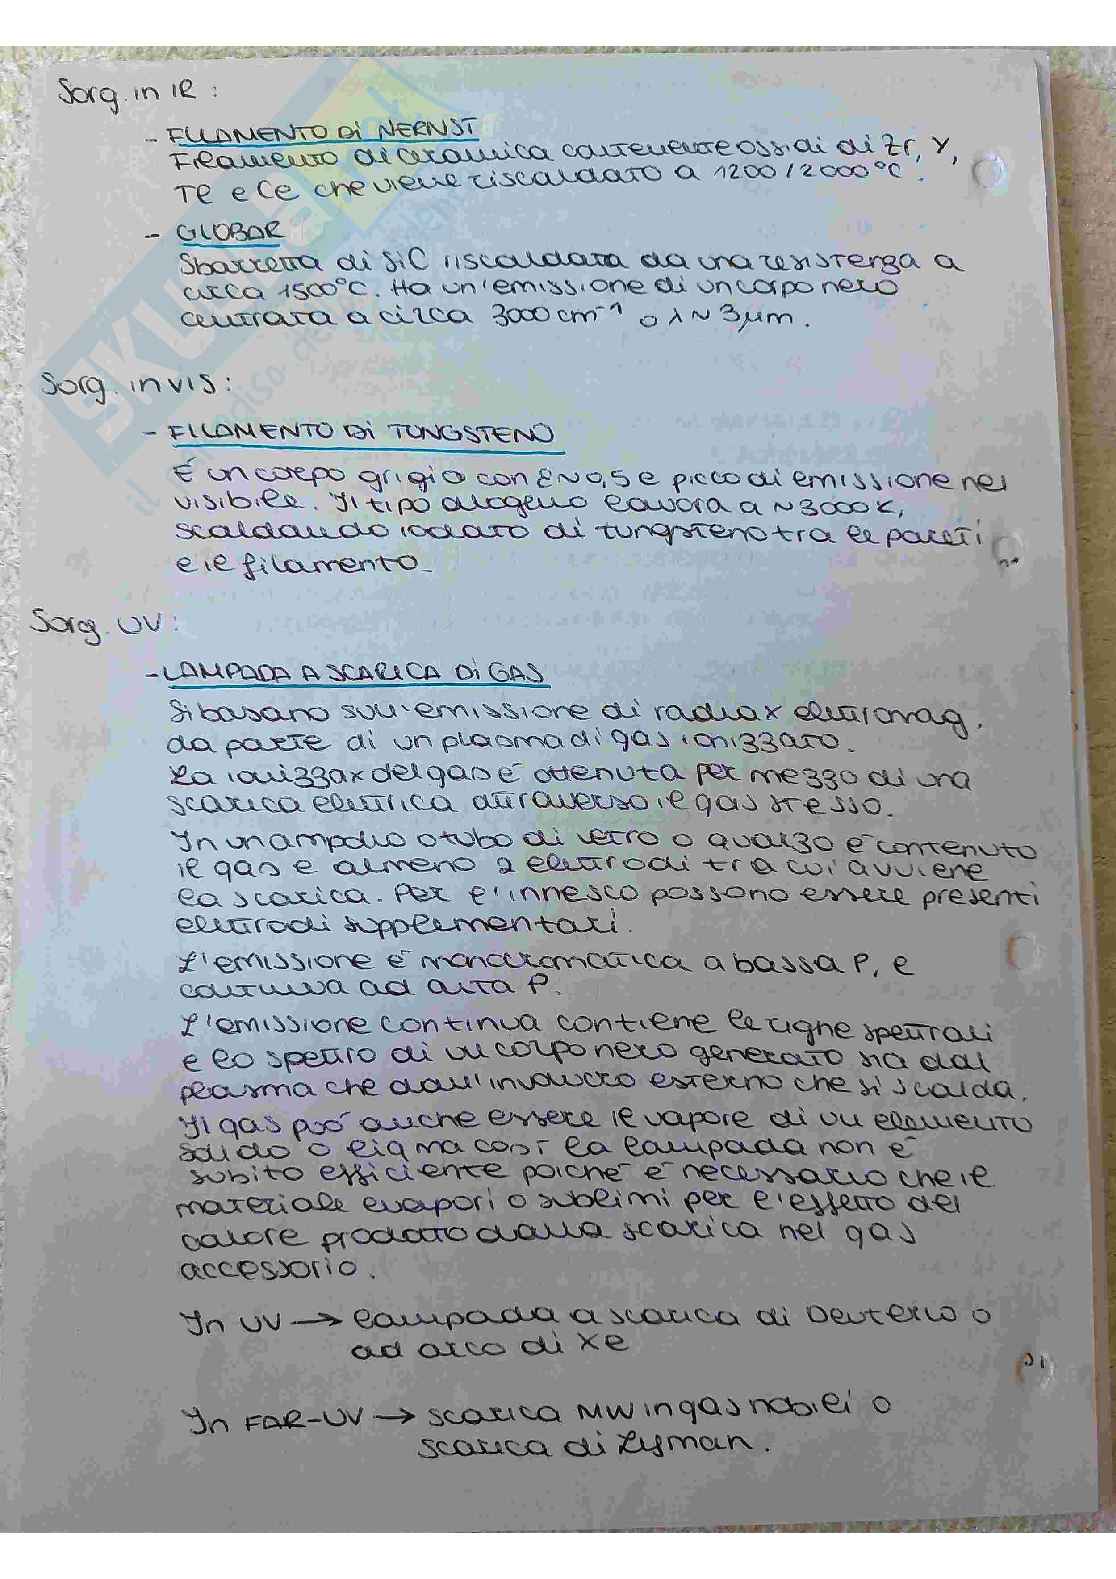 Sorg. in IR :
- FILAMENTO Di NERNST
Filamento di ceramica contenente ossidi di Zr, Y,
Te e Ce che viene riscaldato a 1200/2000°C.
- GLOBAR
Sbarretta di SiC riscaldata da una resistenza a
circa 1500°C. Ha un'emissione di un corpo nero
centrata a circa 3000 cm⁻¹ o λ ~ 3 μm.
Sorg. in VIS :
- FILAMENTO Di TUNGSTENO
É un corpo grigio con ε ~ 0,5 e picco di emissione nel
visibile. Il tipo alogeno lavora a ~ 3000 K,
scaldando iodato di tungsteno tra le pareti
e il filamento.
Sorg. UV :
- LAMPADA A SCARICA Di GAS
Si basano sull'emissione di radiax elettromag.
da parte di un plasma di gas ionizzato.
La ionizzax del gas è ottenuta per mezzo di una
scarica elettrica attraverso il gas stesso.
In un ampolla o tubo di vetro o quarzo è contenuto
il gas e almeno 2 elettrodi tra cui avviene
la scarica. Per l'innesco possono essere presenti
elettrodi supplementari.
L'emissione è monocromatica a bassa P, e
continua ad alta P.
L'emissione continua contiene le righe spettrali
e lo spettro di un corpo nero generato sia dal
plasma che dall'involucro esterno che si scalda.
Il gas può anche essere il vapore di un elemento
solido o liq ma così la lampada non è
subito efficiente poiché è necessario che il
materiale evapori o sublimi per l'effetto del
calore prodotto dalla scarica nel gas
accessorio.
In UV → lampada a scarica di Deuterio o
ad arco di Xe
In FAR-UV → scarica MW in gas nobili o
scarica di Lyman.